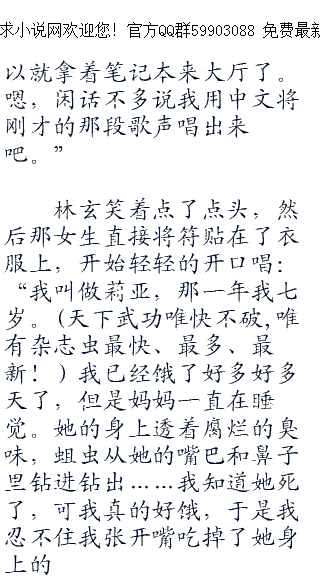 求小说网欢迎您！官方QQ群59903088 免费最新
以就拿着笔记本来大厅了。
嗯，闲话不多说我用中文将
刚才的那段歌声唱出来
吧。”
林玄笑着点了点头，然
后那女生直接将符贴在了衣
服上，开始轻轻的开口唱：
“我叫做莉亚，那一年我七
岁。(天下武功唯快不破,唯
有杂志虫最快、最多、最
新！)我已经饿了好多好多
天了，但是妈妈一直在睡
觉。她的身上透着腐烂的臭
味，蛆虫从她的嘴巴和鼻子
里钻进钻出……我知道她死
了，可我真的好饿，于是我
忍不住我张开嘴吃掉了她身
上的